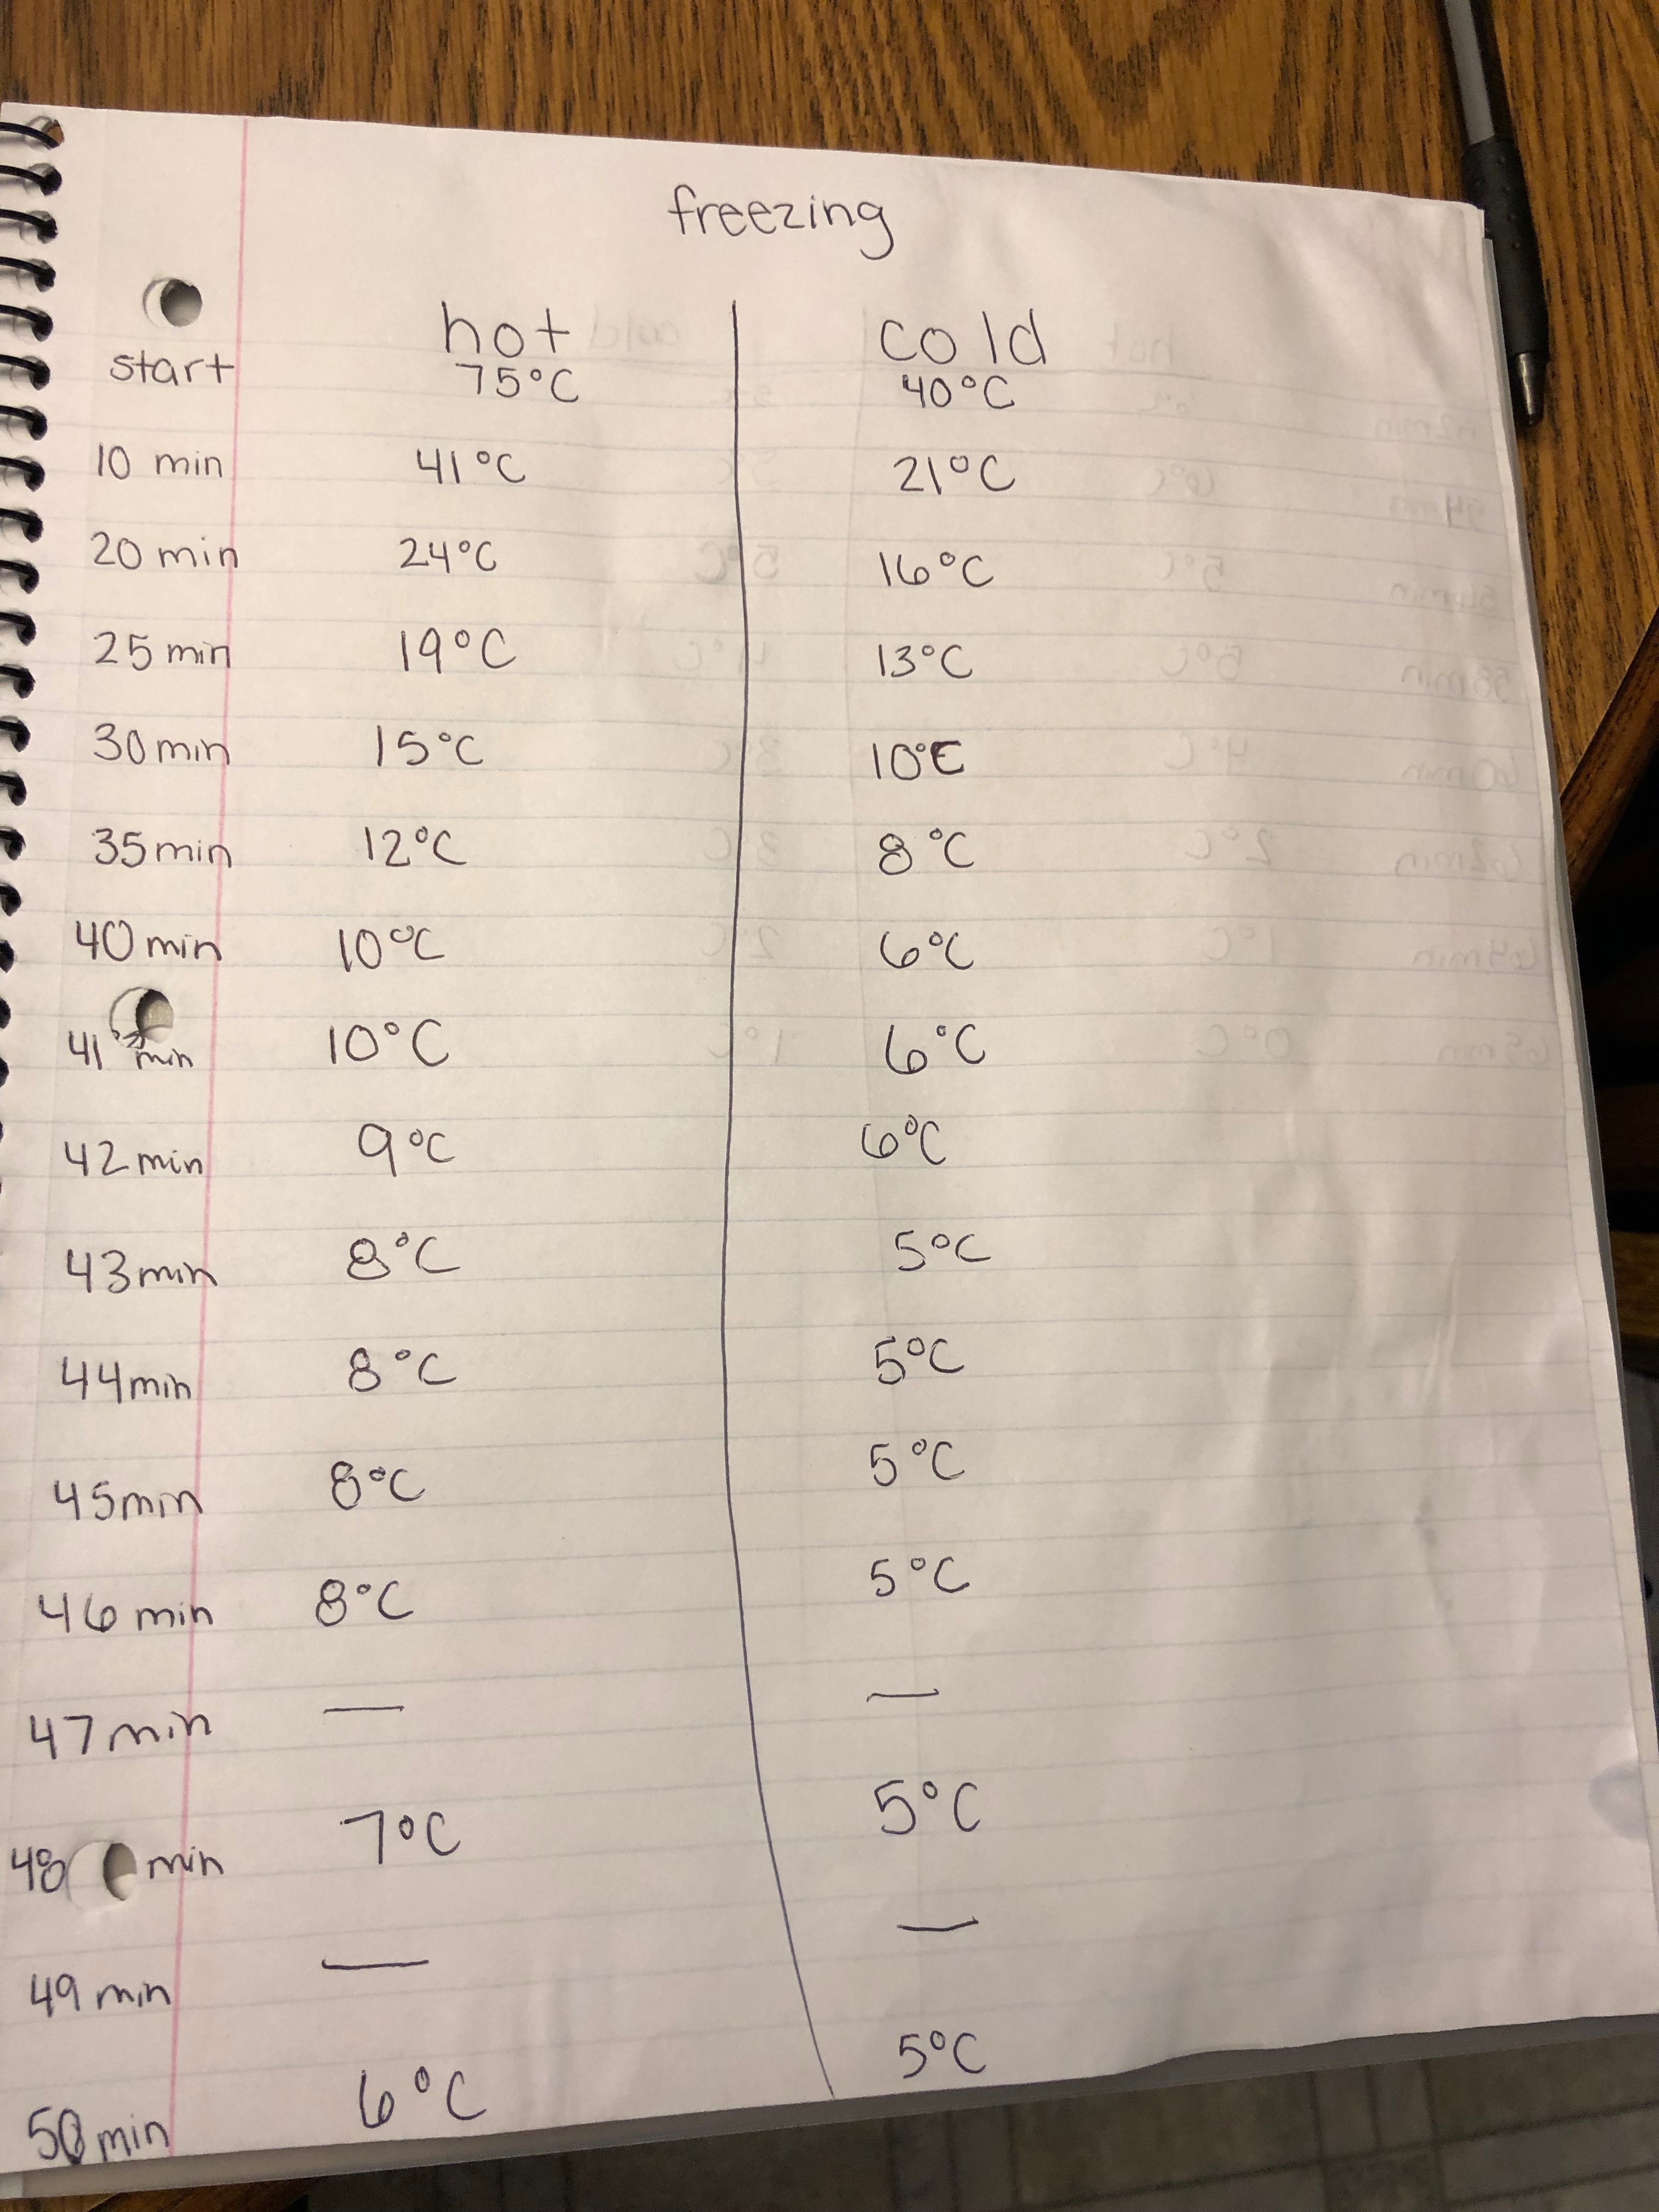 freezing
hot cold
start 75°C 40°C
10 min 41°C 21°C
20 min 24°C 16°C
25 min 19°C 13°C
30 min 15°C 10°C
35 min 12°C 8°C
40 min 10°C 6°C
41 min 10°C 6°C
42 min 9°C 6°C
43 min 8°C 5°C
44 min 8°C 5°C
45 min 8°C 5°C
46 min 8°C 5°C
47 min — —
48 min 7°C 5°C
49 min — —
50 min 6°C 5°C